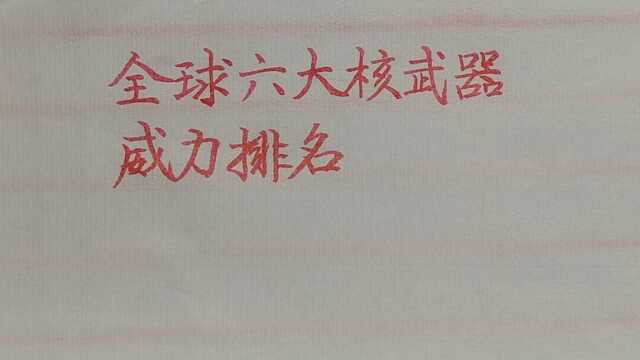 全球六大核武器
威力排名